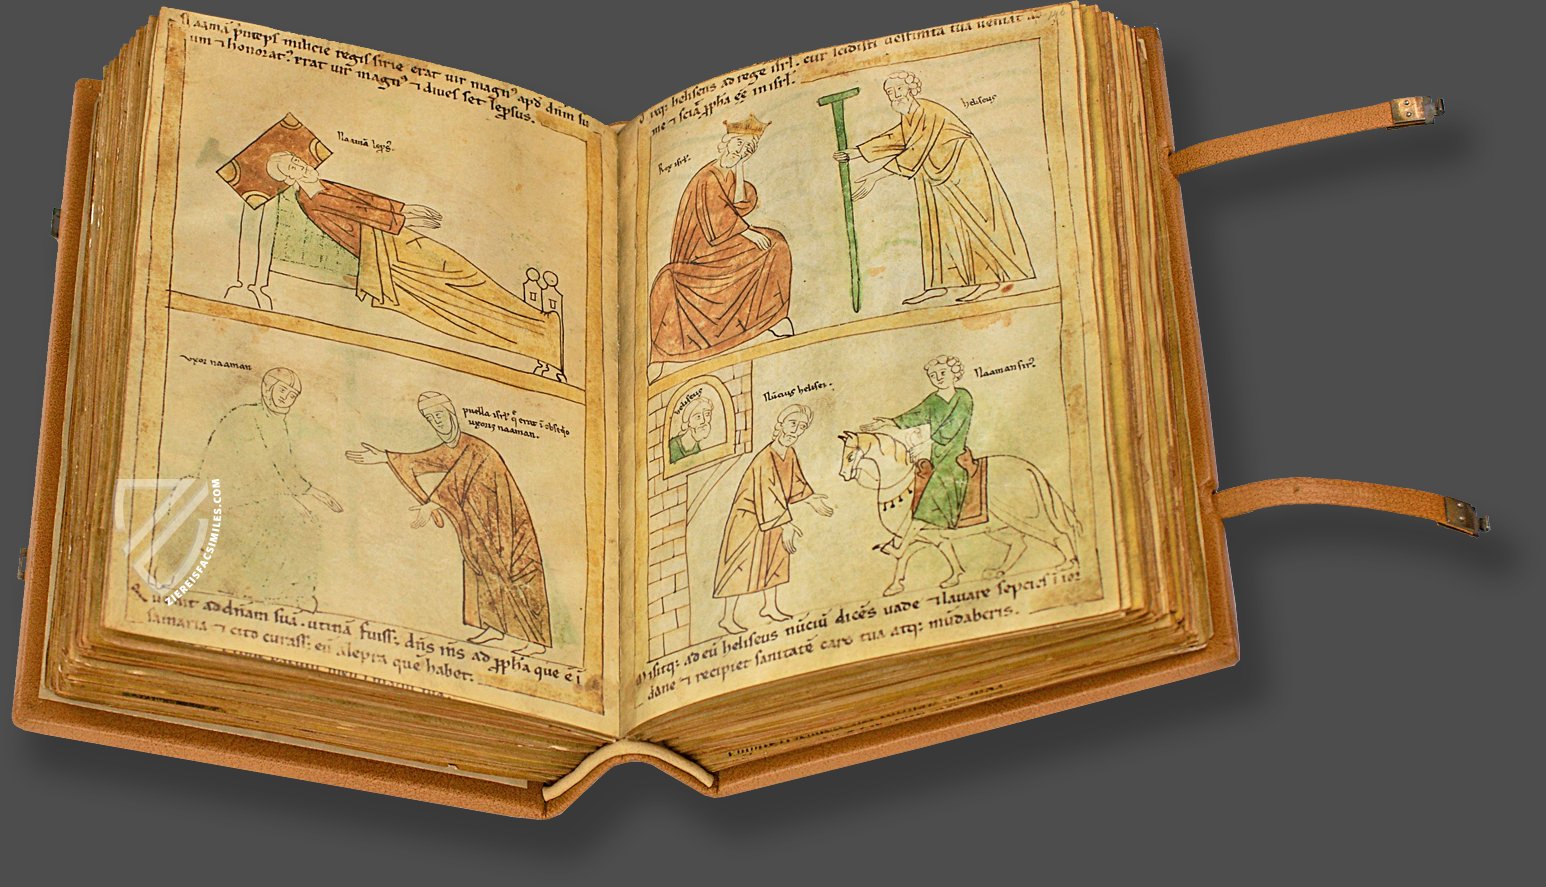 Naamā p̄nceps milicie regis sirie erat uir magn᷒ apd̄ dn̄m su
um ⁊ honorat᷒. erat uir̄ magn᷒ ⁊ diues set lep̄sus.
Naamā lep̄s᷒.
uxor naaman
puella isrl̄. q̄ erat ī obseq̇o
uxoris naaman.
ad dn̄am suā. utinā fuiss; dn̄s m̄s ad ꝓph̄a que ē ī
samaria ⁊ cito curass; eū a lepra que habet.
heliseus ad rege isrl̄. cur scidisti uestimta tua ueniat ad
me ⁊ sciā ꝓph̄a ēe in isrl̄.
146
Rex isrl̄.
heliseus
heliseus
Nūcius helisei.
Naaman sir᷒
Misitq; ad eū heliseus nūciū dicēs uade ⁊ lauare sepcies ī ior
dane ⁊ recipiet sanitatē caro tua atq; mūdaberis.
ZIEREISFACSIMILES.COM